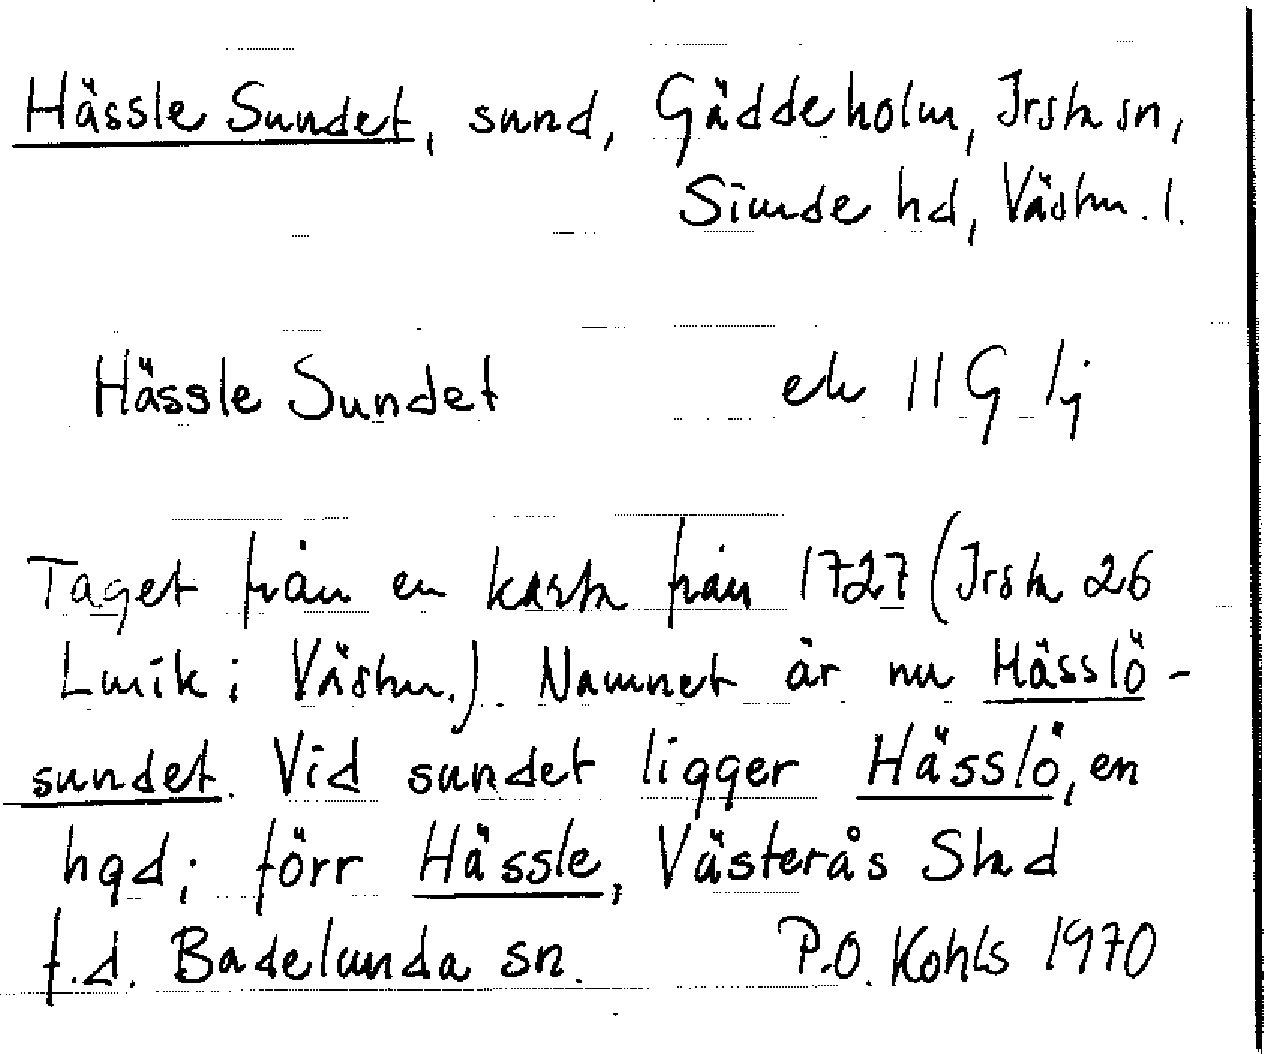 Hässle Sundet, sund, Gäddeholm, Irsta sn,
Siende hd, Västm. l.
Hässle Sundet ek 11 G 1j
Taget från en karta från 1727 (Irsta 26
Lmik i Västm.). Namnet är nu Hässlö-
sundet. Vid sundet ligger Hässlö, en
hgd; förr Hässle, Västerås Stad
f.d. Badelunda sn. P.O. Kohls 1970